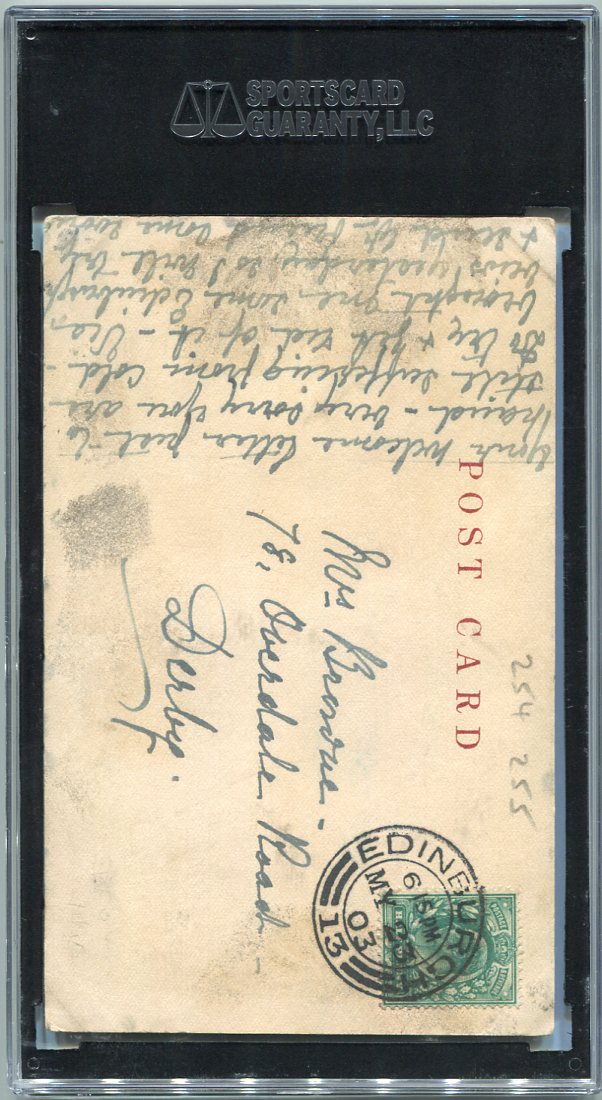 SPORTSCARD
GUARANTY, LLC
POST CARD
254 255
EDINBURGH
6 15 PM
MY 23
03
13
Mrs Browne -
78, Overdale Road -
Derby.
Your welcome letter just to
hand - very sorry you are
still suffering from cold -
Do try & get rid of it -
brought me some Edinburgh
yesterday so I will try
& some